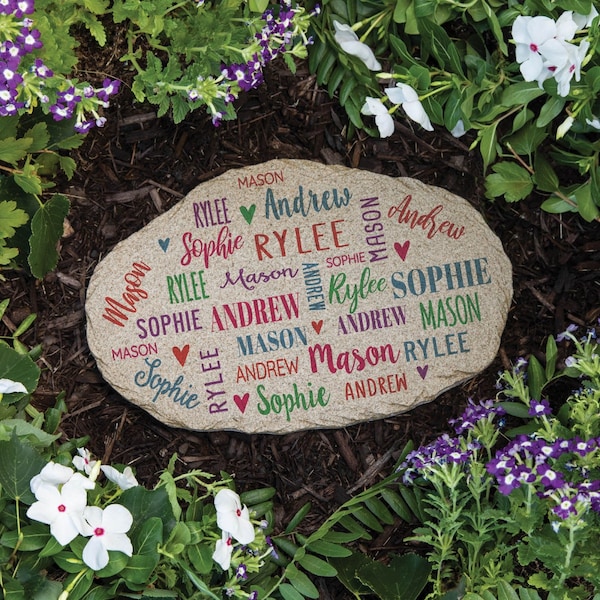 MASON
RYLEE Andrew MASON Andrew
Sophie RYLEE
RYLEE Mason ANDREW SOPHIE Rylee SOPHIE
Mason SOPHIE ANDREW ANDREW MASON
MASON RYLEE MASON Mason RYLEE
Sophie ANDREW ANDREW
Sophie